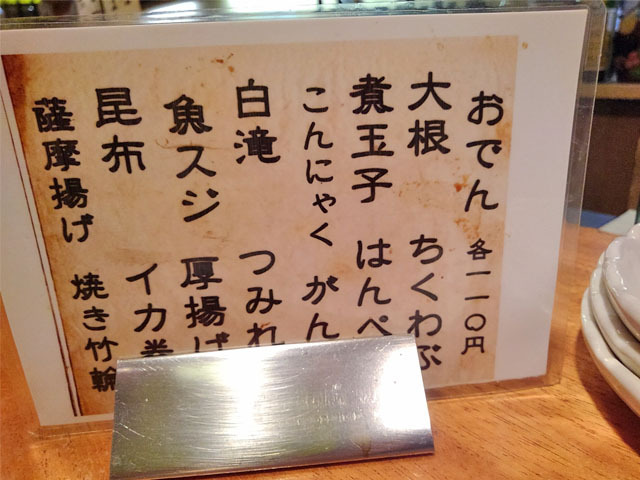 おでん 各一一〇円
大根 ちくわぶ
煮玉子 はんぺ
こんにゃく がん
白滝 つみれ
魚スジ 厚揚げ
昆布 イカ巻
薩摩揚げ 焼き竹輪